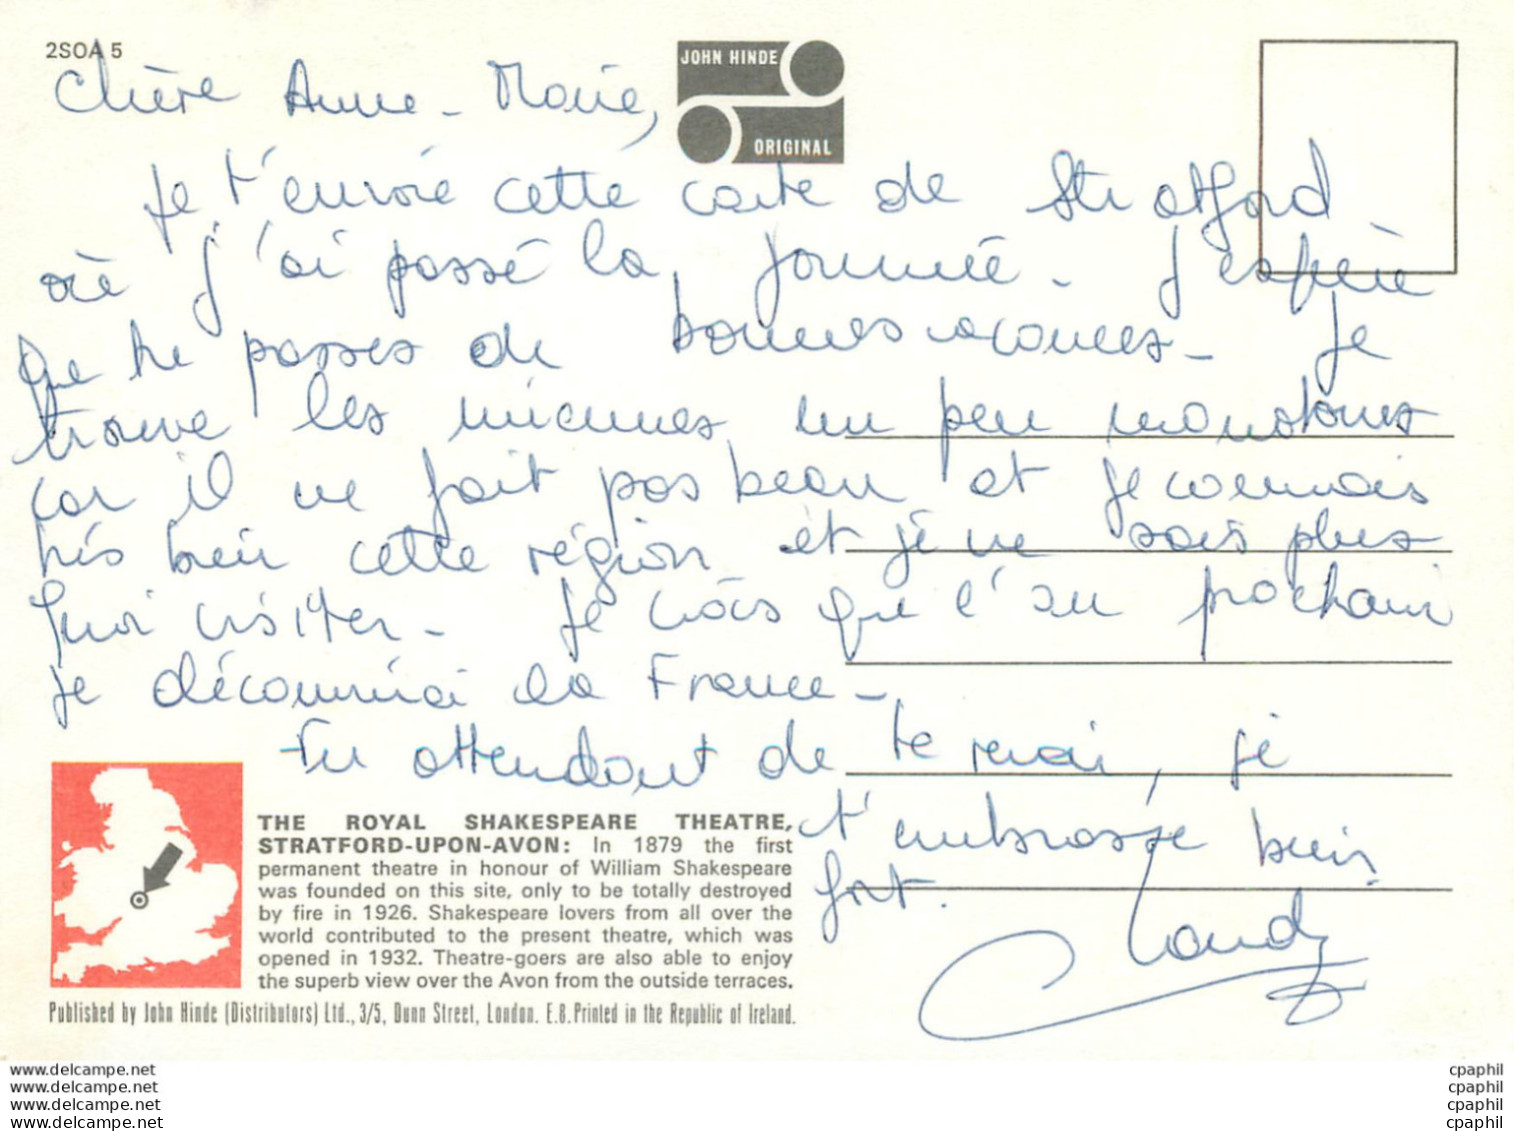 2SOA 5
JOHN HINDE
ORIGINAL
Chère Anne-Marie,
Je t'envoie cette carte de Stratford
où j'ai passé la journée - J'espère
que tu passes de bonnes vacances - Je
trouve les miennes un peu monotones
car il ne fait pas beau et je connais
très bien cette région et je ne sais plus
quoi visiter - Je crois que l'an prochain
je découvrirai la France -
En attendant de te revoir, je
t'embrasse bien
fort.
THE ROYAL SHAKESPEARE THEATRE,
STRATFORD-UPON-AVON: In 1879 the first
permanent theatre in honour of William Shakespeare
was founded on this site, only to be totally destroyed
by fire in 1926. Shakespeare lovers from all over the
world contributed to the present theatre, which was
opened in 1932. Theatre-goers are also able to enjoy
the superb view over the Avon from the outside terraces.
Published by John Hinde (Distributors) Ltd., 3/5, Dunn Street, London. E.8. Printed in the Republic of Ireland.
www.delcampe.net
www.delcampe.net
www.delcampe.net
www.delcampe.net
cpaphil
cpaphil
cpaphil
cpaphil